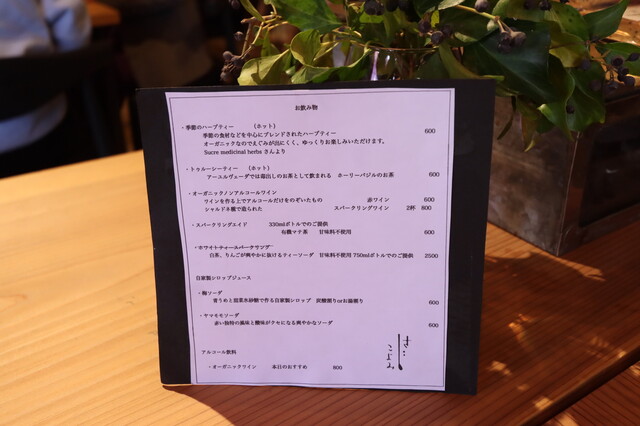 お飲み物
・季節のハーブティー （ホット）
季節の食材などを中心にブレンドされたハーブティー 600
オーガニックなのでえぐみが出にくく、ゆっくりお楽しみいただけます。
Sucre medicinal herbs さんより
・トゥルーシーティー （ホット）
アーユルヴェーダでは毒出しのお茶として飲まれる ホーリーバジルのお茶 600
・オーガニックノンアルコールワイン
ワインを作る上でアルコールだけをのぞいたもの 赤ワイン 600
シャルドネ種で造られた スパークリングワイン 2杯 800
・スパークリングエイド 330mlボトルでのご提供
有機マテ茶 甘味料不使用 600
・ホワイトティースパークリング
白茶、りんごが爽やかに抜けるティーソーダ 甘味料不使用 750mlボトルでのご提供 2500
自家製シロップジュース
・梅ソーダ
青うめと甜菜氷砂糖で作る自家製シロップ 炭酸割りorお湯割り 600
・ヤマモモソーダ
赤い独特の風味と酸味がクセになる爽やかなソーダ 600
アルコール飲料
・オーガニックワイン 本日のおすすめ 800